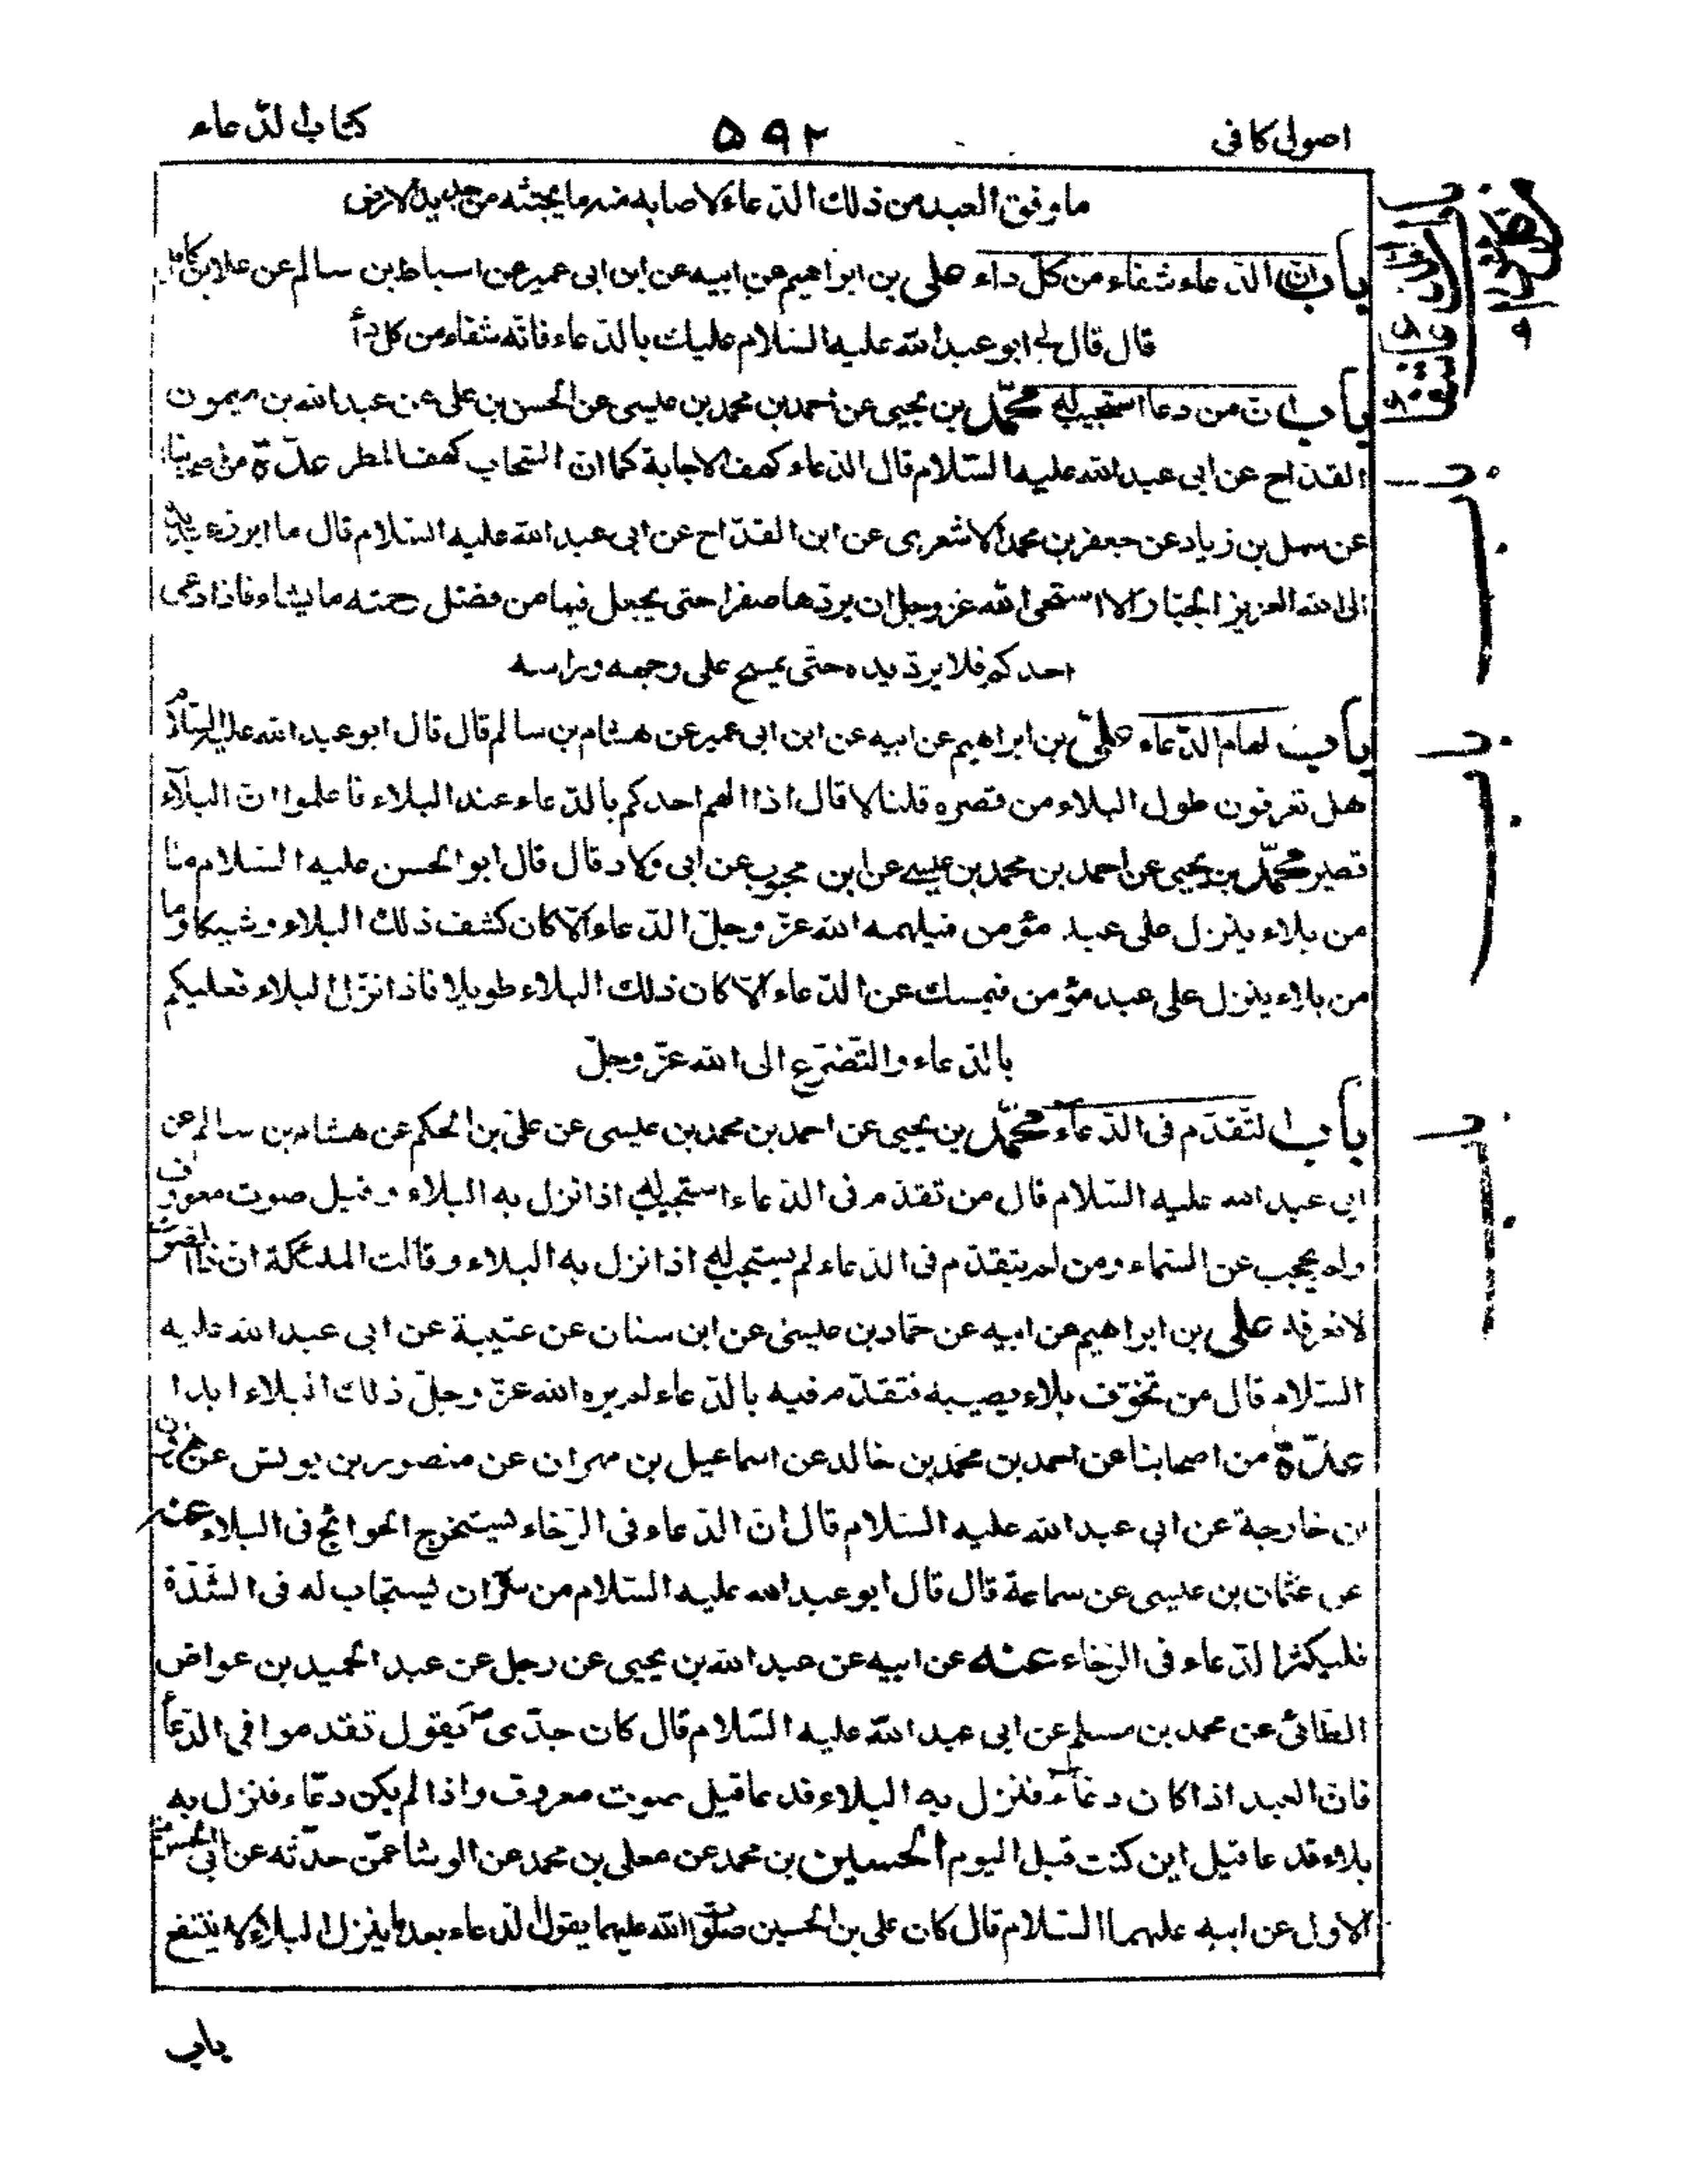 اصول كافى ٥٩٢ كتاب الدّعاء
ما وفق العبد من ذلك الدّعاء لاصابه منه ما يجتثه من جديد الارض
باب انّ الدّعاء شفاء من كل داء علي بن ابراهيم عن ابيه عن ابن ابى عمير عن اسباط بن سالم عن علاء بن كامل
قال قال لى ابو عبد الله عليه السّلام عليك بالدّعاء فانّه شفاء من كل دأ
باب انّ من دعا استجيب له محمّد بن يحيى عن احمد بن محمد بن عيسى عن الحسن بن على عن عبد الله بن ميمون
القدّاح عن ابى عبد الله عليه السّلام قال الدّعاء كهف الاجابة كما ان السّحاب كهف المطر عدّة من اصحابنا
عن سهل بن زياد عن جعفر بن محمد الاشعرى عن ابن القدّاح عن ابى عبد الله عليه السّلام قال ما ابرز عبد يده
الى الله العزيز الجبّار الا استحيى الله عز وجل ان يردّها صفرا حتى يجعل فيها من فضل رحمته ما يشاء فاذا دعى
احدكم فلا يردّ يده حتّى يمسح على وجهه وراسه
باب الهام الدّعاء علىّ بن ابراهيم عن ابيه عن ابن ابى عمير عن هشام بن سالم قال قال ابو عبد الله عليه السّلام
هل تعرفون طول البلاء من قصره قلنا لا قال اذا الهم احدكم بالدّعاء عند البلاء فاعلموا انّ البلآء
قصير محمّد بن يحيى عن احمد بن محمد بن عيسى عن ابن محبوب عن ابى ولاد قال قال ابو الحسن عليه السّلام ما
من بلاء ينزل على عبد مؤمن فيلهمه الله عزّ وجلّ الدّعاء الّا كان كشف ذلك البلاء وشيكا وما
من بلاء ينزل على عبد مؤمن فيمسك عن الدّعاء الّا كان ذلك البلاء طويلا فاذا نزل البلاء فعليكم
بالدّعاء والتّضرّع الى الله عزّ وجلّ
باب التّقدّم فى الدّعاء محمّد بن يحيى عن احمد بن محمد بن عيسى عن علىّ بن الحكم عن هشام بن سالم عن
ابى عبد الله عليه السّلام قال من تقدّم فى الدّعاء استجيب له اذا نزل به البلاء وقيل صوت معروف
ولم يحجب عن السّماء ومن لم يتقدّم فى الدّعاء لم يستجب له اذا نزل به البلاء وقالت الملئكة ان ذا الصّوت
لا نعرفه علي بن ابراهيم عن ابيه عن حمّاد بن عيسى عن ابن سنان عن عتيبة عن ابى عبد الله عليه
السّلام قال من تخوّف بلاء يصيبه فتقدّم فيه بالدّعاء لم يره الله عزّ وجلّ ذلك البلاء ابدا
عدّة من اصحابنا عن احمد بن محمّد بن خالد عن اسماعيل بن مهران عن منصور بن يونس عن هرون
بن خارجة عن ابى عبد الله عليه السّلام قال انّ الدّعاء فى الرّخاء ليستخرج الحوائج فى البلاء عنه
عن عثمان بن عيسى عن سماعة قال قال ابو عبد الله عليه السّلام من سرّه ان يستجاب له فى الشّدّة
فليكثر الدّعاء فى الرّخاء عنه عن ابيه عن عبد الله بن يحيى عن رجل عن عبد الحميد بن عواض
الطّائىّ عن محمد بن مسلم عن ابى عبد الله عليه السّلام قال كان جدّى يقول تقدموا فى الدّعأ
فانّ العبد اذا كان دعّاء فنزل به البلاء فدعا قيل صوت معروف واذا لم يكن دعّاء فنزل به
بلاء فدعا قيل اين كنت قبل اليوم الحسين بن محمد عن معلى بن محمد عن الوشا عمّن حدّثه عن ابى الحسن
الاول عن ابيه عليهما السّلام قال كان على بن الحسين صلوات الله عليهما يقول الدّعاء بعد ما ينزل البلاء لا ينتفع
باب